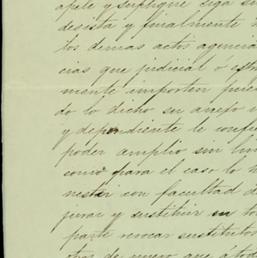 apele y suplique siga su
desista y finalmente
los demas actos agencia
cias que judicial o
mente importen
do lo dicho su anejo
y dependiente le confie
poder amplio sin
como para el caso lo
nester con facultad
jurar y sustituir
parte revocar sustitutos
de nuevo que á tod